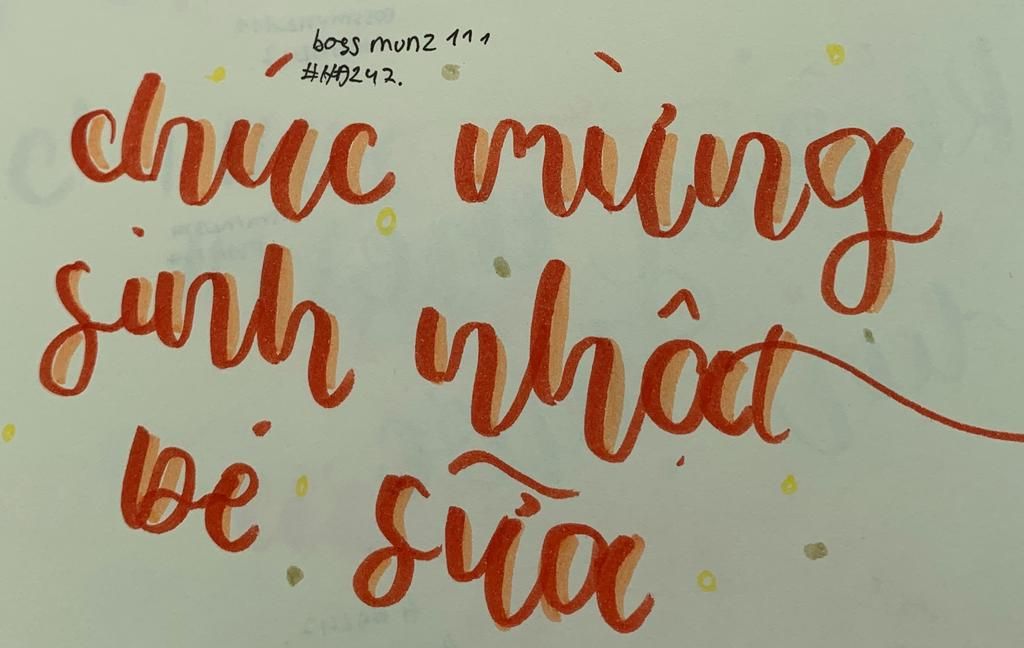 boss munz 111
#HD242.
chúc mừng
sinh nhật
bé sữa